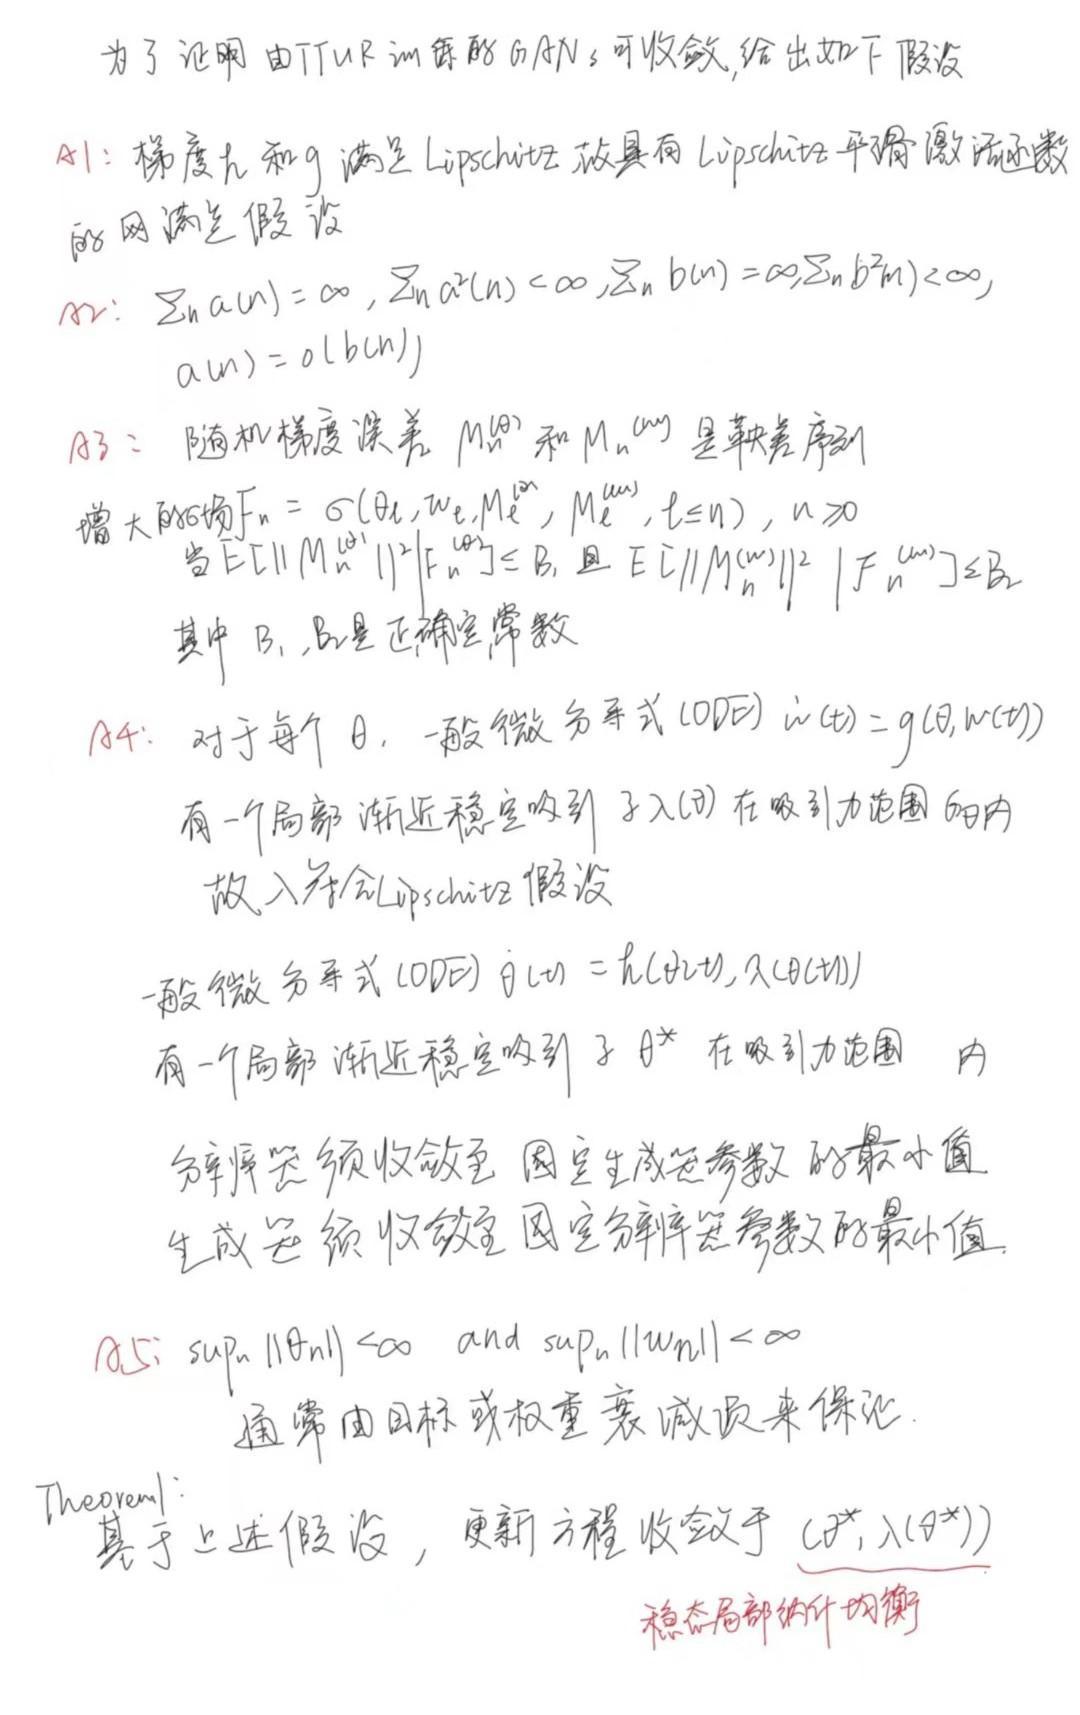 为了证明由TTUR训练的GANs可收敛,给出如下假设
A1: 梯度h和g满足Lipschitz 故具有Lipschitz平滑激活函数
的网满足假设
A2: Σn a(n) = ∞, Σn a²(n) < ∞, Σn b(n) = ∞, Σn b²(n) < ∞,
a(n) = o(b(n))
A3: 随机梯度误差 Mn^(θ) 和 Mn^(w) 是鞅差序列
增大的σ场Fn = σ(θl, wl, Ml^(θ), Ml^(w), l≤n), n≥0
当E[||Mn^(θ)||²|Fn^(θ)]≤B1 且 E[||Mn^(w)||²|Fn^(w)]≤B2
其中 B1, B2是正确定常数
A4: 对于每个 θ, 一般微分等式(ODE) ẇ(t) = g(θ, w(t))
有一个局部渐近稳定吸引子λ(θ) 在吸引力范围Gθ内
故λ符合Lipschitz假设
一般微分等式(ODE) θ̇(t) = h(θ(t), λ(θ(t)))
有一个局部渐近稳定吸引子 θ* 在吸引力范围 内
分辨器须收敛至 固定生成器参数的最小值
生成器须收敛至固定分辨器参数的最小值.
A5: supn ||θn|| < ∞ and supn ||wn|| < ∞
通常由目标或权重衰减项来保证.
Theorem1:
基于上述假设, 更新方程收敛于 (θ*, λ(θ*))
稳态局部纳什均衡